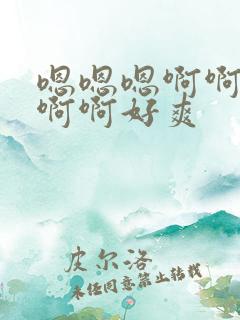 嗯嗯嗯啊啊
啊啊好爽
皮尔洛
未经同意禁止转载